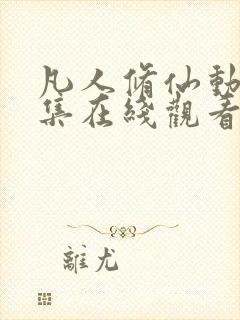 凡人脩仙動
集在綫觀看
離尤